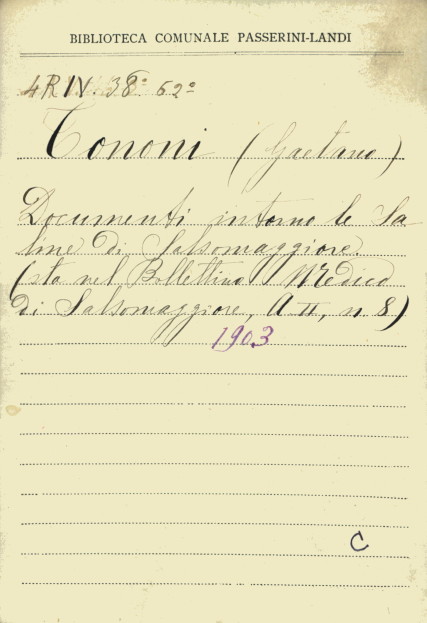 BIBLIOTECA COMUNALE PASSERINI-LANDI
4R IV. 38° 62°
Tononi (Gaetano)
Documenti intorno le Sa
line di Salsomaggiore.
(sta nel Bollettino Medico
di Salsomaggiore, A II, n 8)
1903
C